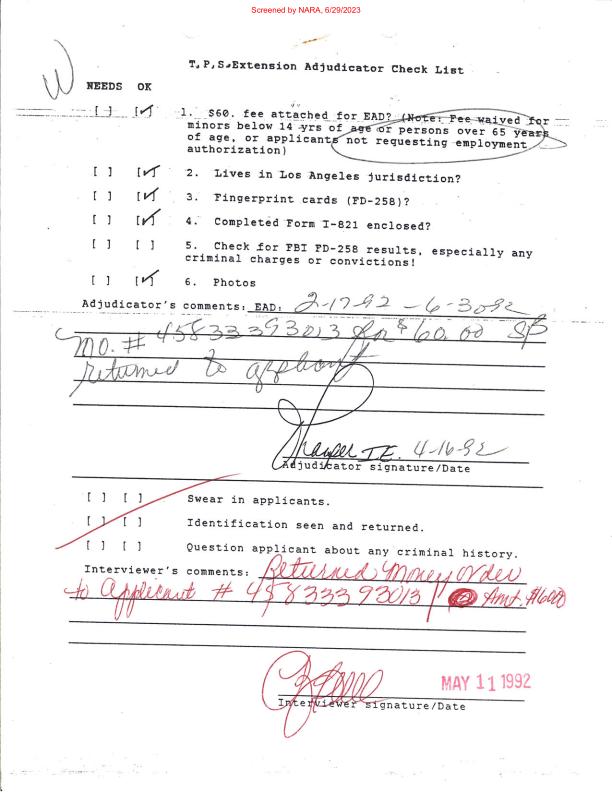 Screened by NARA, 6/29/2023
T.P.S. Extension Adjudicator Check List
W
NEEDS OK
[ ] [✓] 1. $60. fee attached for EAD? (Note: Fee waived for
minors below 14 yrs of age or persons over 65 years
of age, or applicants not requesting employment
authorization)
[ ] [✓] 2. Lives in Los Angeles jurisdiction?
[ ] [✓] 3. Fingerprint cards (FD-258)?
[ ] [✓] 4. Completed Form I-821 enclosed?
[ ] [ ] 5. Check for FBI FD-258 results, especially any
criminal charges or convictions!
[ ] [✓] 6. Photos
Adjudicator's comments: EAD: 2-17-92 - 6-30-92
MO. # 45833393013 for $60.00
returned to applicant
I.E. 4-16-92
Adjudicator signature/Date
[ ] [ ] Swear in applicants.
[ ] [ ] Identification seen and returned.
[ ] [ ] Question applicant about any criminal history.
Interviewer's comments: Returned Money Order
to Applicant # 45833393013 / Amt. $60.00
MAY 11 1992
Interviewer signature/Date